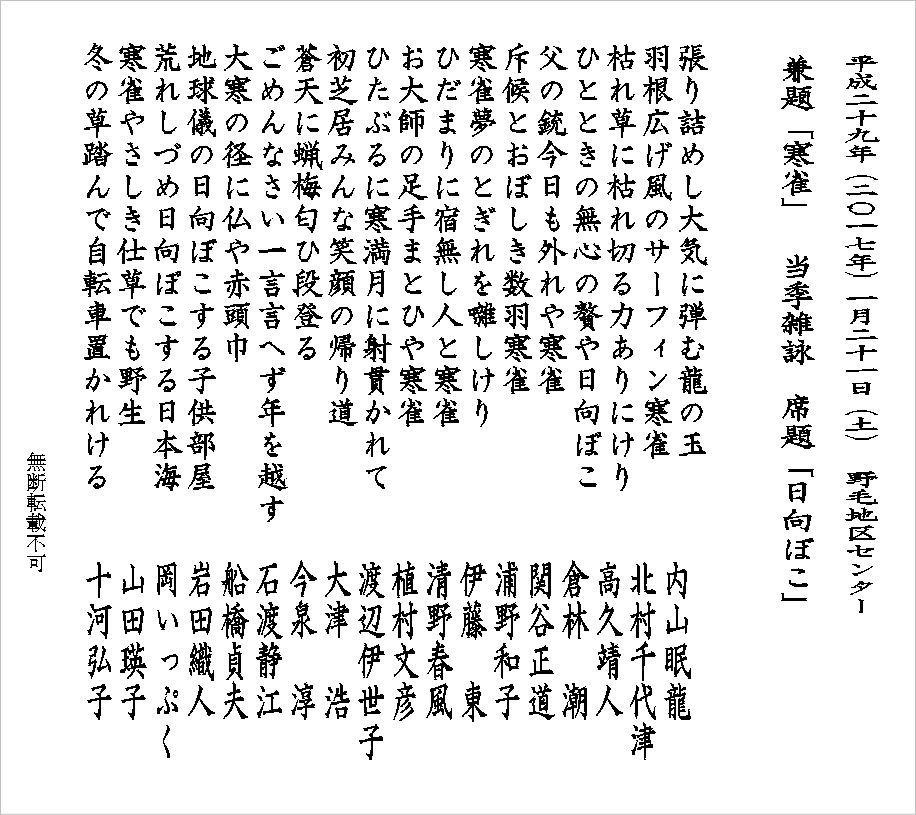 平成二十九年(二〇一七年)一月二十一日(土) 野毛地区センター
兼題「寒雀」 当季雑詠 席題「日向ぼこ」
張り詰めし大気に弾む龍の玉 内山眠龍
羽根広げ風のサーフィン寒雀 北村千代津
枯れ草に枯れ切る力ありにけり 高久靖人
ひとときの無心の贅や日向ぼこ 倉林 潮
父の銃今日も外れや寒雀 関谷正道
斥候とおぼしき数羽寒雀 浦野和子
寒雀夢のとぎれを囃しけり 伊藤 東
ひだまりに宿無し人と寒雀 清野春風
お大師の足手まとひや寒雀 植村文彦
ひたぶるに寒満月に射貫かれて 渡辺伊世子
初芝居みんな笑顔の帰り道 大津 浩
蒼天に蝋梅匂ひ段登る 今泉 淳
ごめんなさい一言言へず年を越す 石渡静江
大寒の径に仏や赤頭巾 船橋貞夫
地球儀の日向ぼこする子供部屋 岩田織人
荒れしづめ日向ぼこする日本海 岡いっぷく
寒雀やさしき仕草でも野生 山田瑛子
冬の草踏んで自転車置かれける 十河弘子
無断転載不可